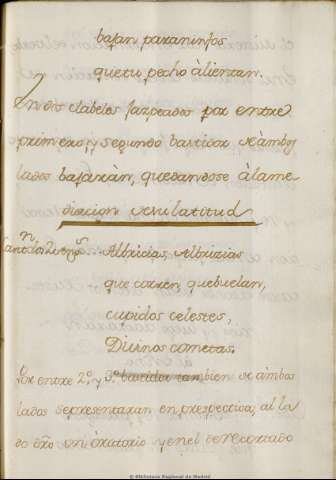 bajan paraninfos
que tu pecho àlientan.
En dos clabeles jazpeados por entre
primero, y segundo bastidor de àmbos
lados bajaràn, quedandose à la me-
diacion de su latitud
Cantado los dos Albricias, Albrizias
que corren, que buelan,
cupidos celestes,
Divinos cometas.
Por entre 2º, y 3º bastidor tambien de ambos
lados se presentaran en prespectiva, al la
do dro un oratorio y en el de recortado
© Biblioteca Regional de Madrid